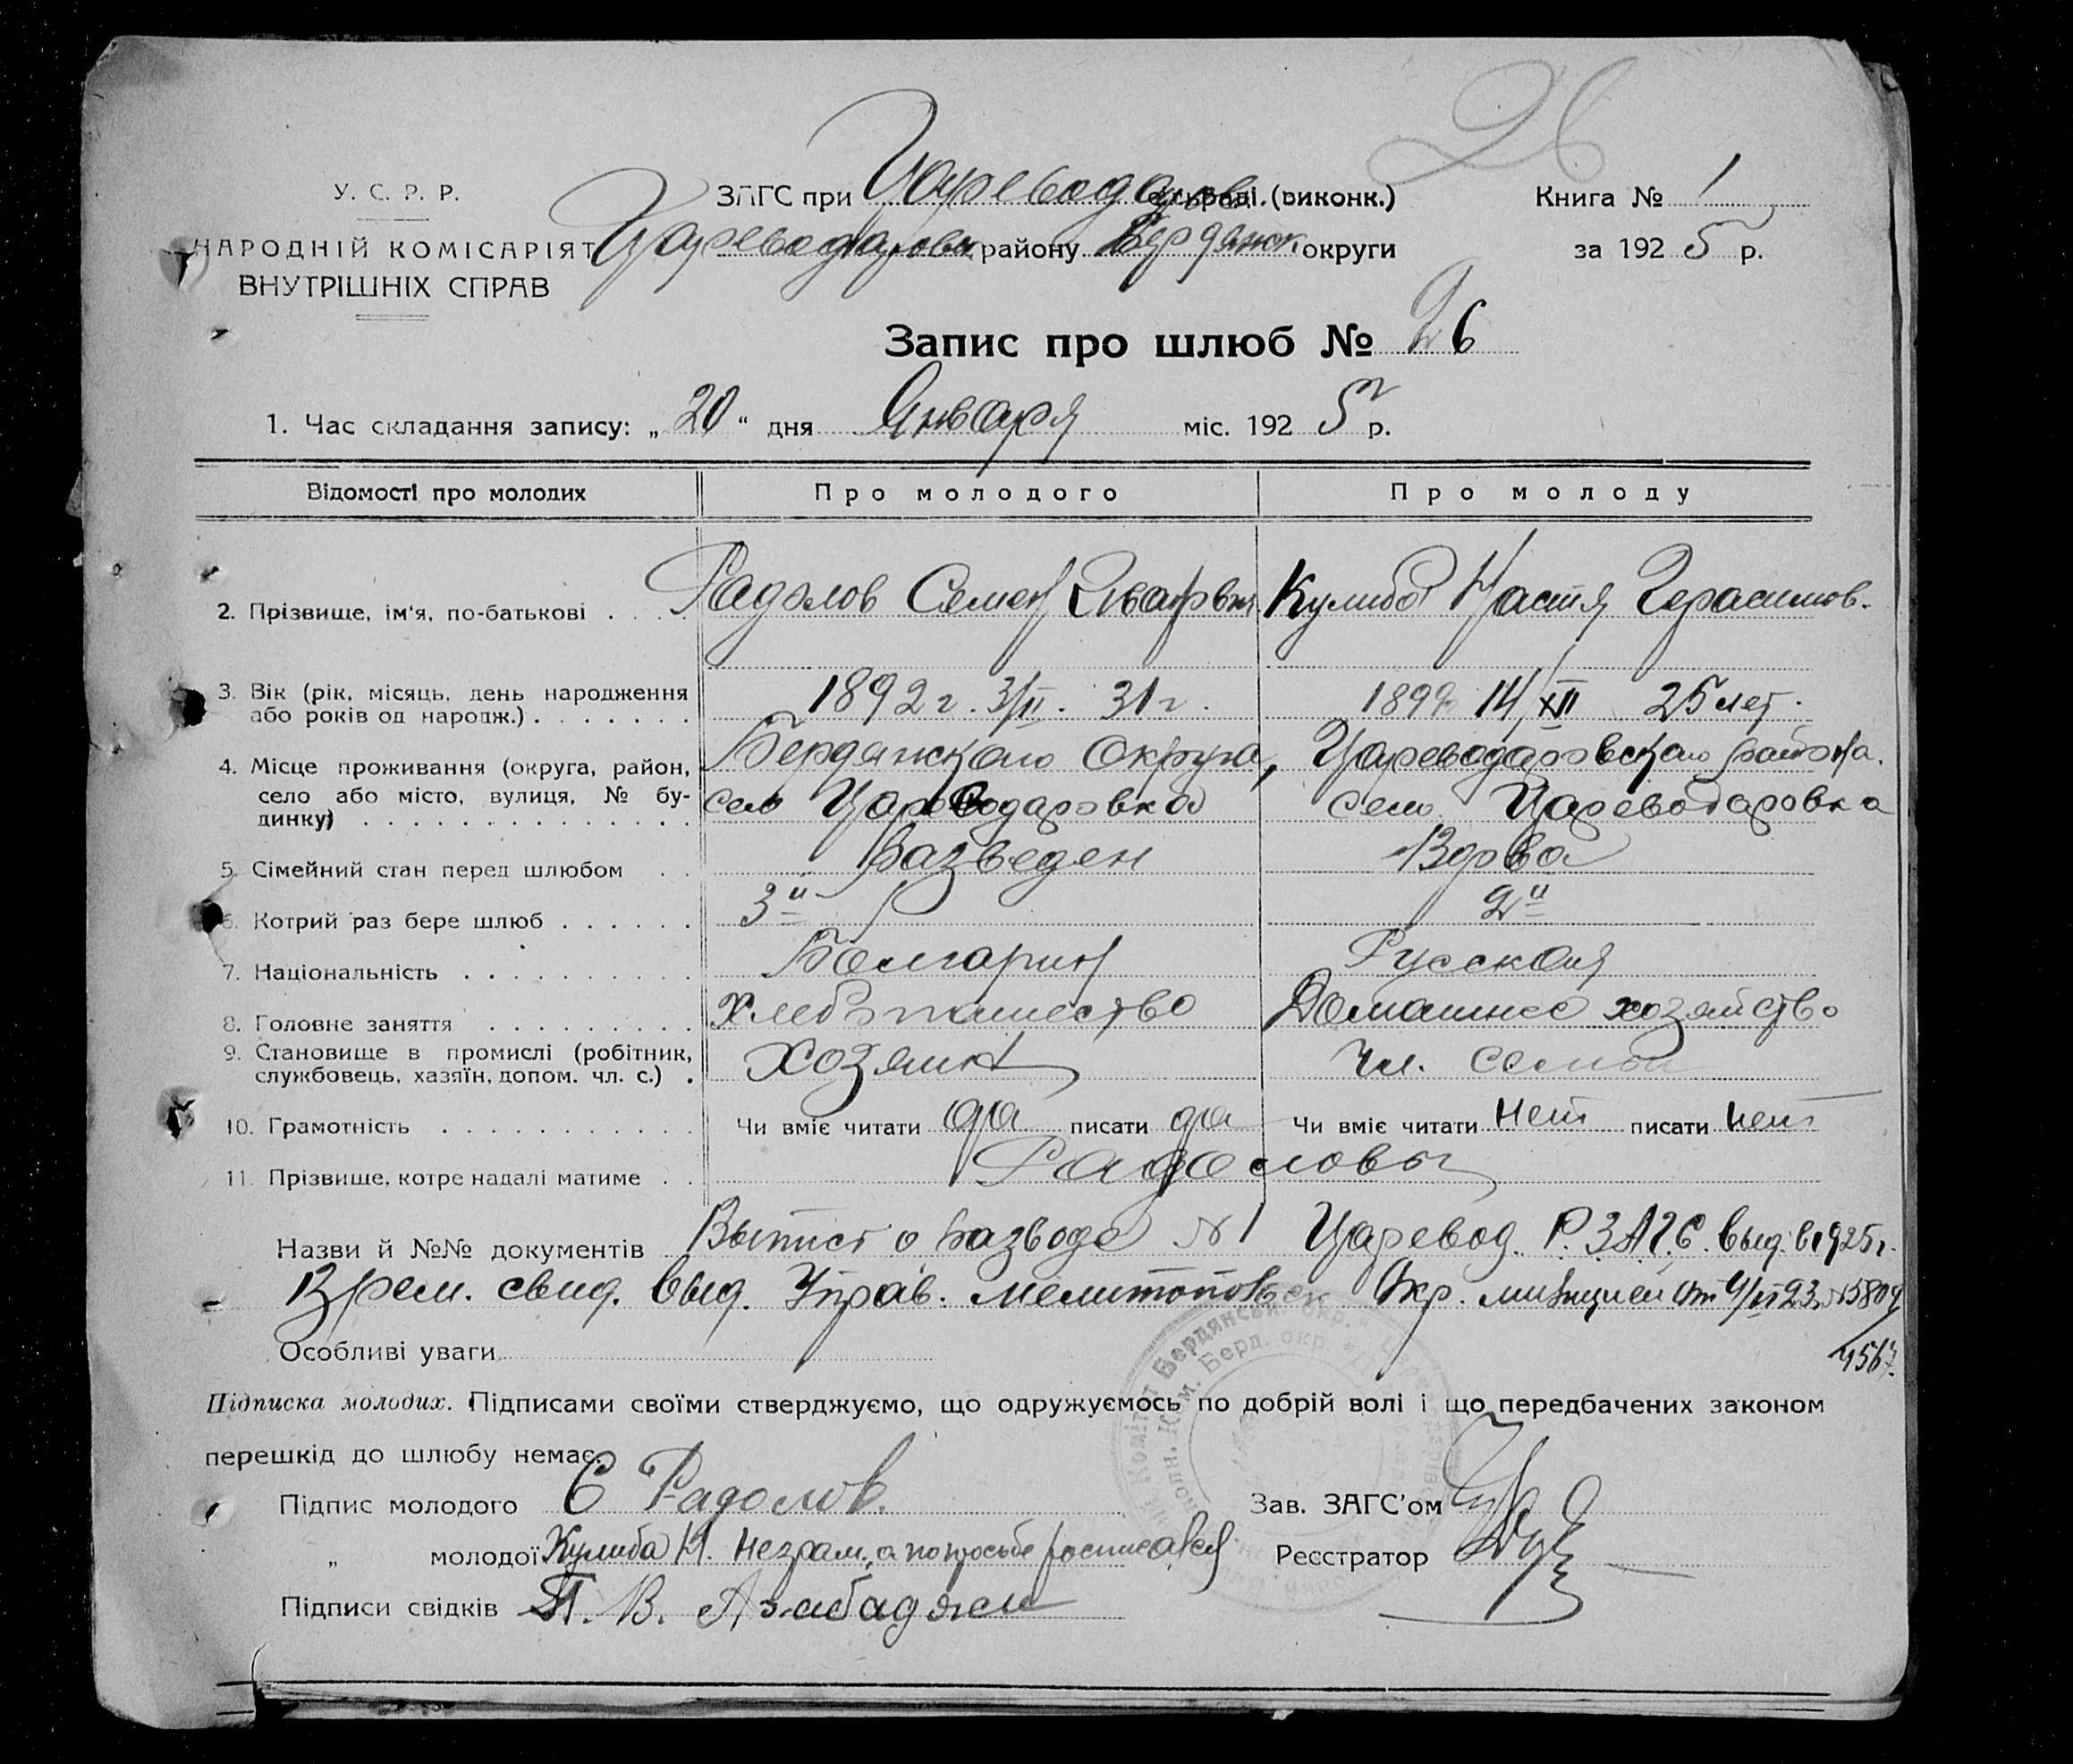 26
У. С. Р. Р.
ЗАГС при Цареводаров. сільраді. (виконк.) Книга № 1
НАРОДНІЙ КОМІСАРІЯТ Цареводаровск району Бердянск. округи за 1925 р.
ВНУТРІШНІХ СПРАВ
Запис про шлюб № 26
1. Час складання запису: „20“ дня Января міс. 1925 р.
Відомості про молодих Про молодого Про молоду
2. Прізвище, ім'я, по-батькові . . . . Радолов Семен Кулиба Настя Герасимов.
3. Вік (рік, місяць, день народження 1892 г. 3/II. 31 г. 1899 14/XII 25 лет.
або років од народж.) . . . . . . .
4. Місце проживання (округа, район, Бердянского Округа, Цареводаровского района.
село або місто, вулиця, № бу- село Цареводаровка село Цареводаровка
динку) . . . . . . . . . . . . . .
5. Сімейний стан перед шлюбом . . Разведен Вдова
6. Котрий раз бере шлюб . . . . . . 3й 2й
7. Національність . . . . . . . . . Болгарин Русская
8. Головне заняття . . . . . . . . . Хлебопашество Домашнее хозяйство
9. Становище в промислі (робітник, Хозяин Чл. семьи
службовець, хазяїн, допом. чл. с.) .
10. Грамотність . . . . . . . . . . . Чи вміє читати да писати да Чи вміє читати нет писати нет
11. Прізвище, котре надалі матиме . . Радоловы
Назви й №№ документів Выпись о разводе №1 Царевод. Р. ЗАГС. выд. в 1925 г.
Врем. свид. выд. Управ. Мелитопольск Окр. милицией от 4/II 23 № 5804
4567.
Особливі уваги
Підписка молодих. Підписами своїми стверджуємо, що одружуємось по добрій волі і що передбачених законом
перешкід до шлюбу немає.
Підпис молодого С Радолов. Зав. ЗАГС'ом
„ молодої Кулиба Н. Незрам, а по просьбе росписался Реєстратор
Підписи свідків П. В.